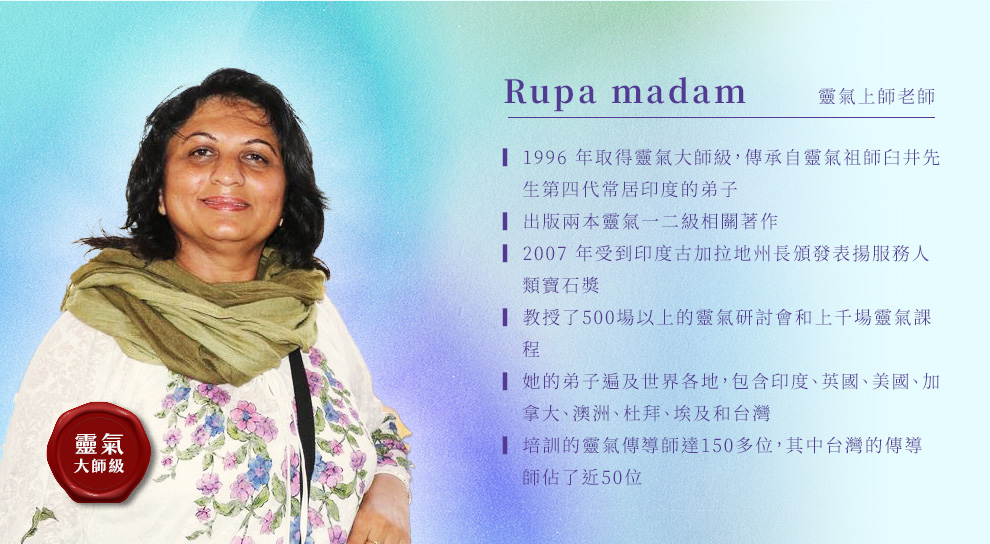 Rupa madam 靈氣上師老師
1996 年取得靈氣大師級，傳承自靈氣祖師臼井先
生第四代常居印度的弟子
出版兩本靈氣一二級相關著作
2007 年受到印度古加拉地州長頒發表揚服務人
類寶石獎
教授了500場以上的靈氣研討會和上千場靈氣課
程
她的弟子遍及世界各地，包含印度、英國、美國、加
拿大、澳洲、杜拜、埃及和台灣
培訓的靈氣傳導師達150多位，其中台灣的傳導
師佔了近50位
靈氣
大師級